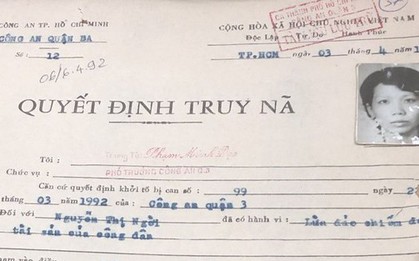 CÔNG AN TP. HỒ CHÍ MINH
CÔNG AN QUẬN BA
Số : 12
06/6.4.92
CỘNG HÒA XÃ HỘI CHỦ NGHĨA VIỆT NAM
Độc Lập Tự Do Hạnh Phúc
TP.HCM ngày 03 tháng 4
QUYẾT ĐỊNH TRUY NÃ
Tôi :
Chức vụ : PHÓ TRƯỞNG CÔNG AN Q.3
Căn cứ quyết định khởi tố bị can số : 99 ngày
tháng 03 năm 1992 của Công an quận 3
Đối với Nguyễn Thị Ngời đã có hành vi : Lừa đảo chiếm
tài sản của công dân